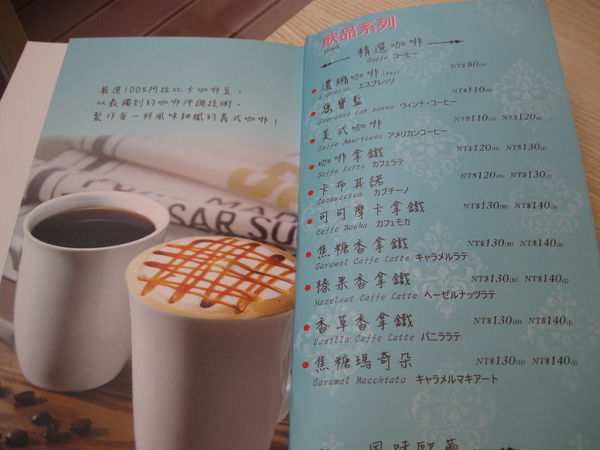 嚴選100%阿拉比卡咖啡豆，
以最獨到的咖啡沖調技術，
製作每一杯風味細膩的義式咖啡！
飲品系列
Drink
精選咖啡
Caffe コーヒー
濃縮咖啡 NT$80(H)
Espresso エスプレッソ
康寶藍 NT$110(H)
Espresso con panna ウインナ・コーヒー
美式咖啡 NT$110(H) NT$120(I)
Caffe Americano アメリカンコーヒー
咖啡拿鐵 NT$120(H) NT$130(I)
Caffe Latte カフェラテ
卡布其諾 NT$120(H) NT$130(I)
Cappuccino カプチーノ
可可摩卡拿鐵 NT$130(H) NT$140(I)
Caffe Mocha カフェモカ
焦糖香拿鐵 NT$130(H) NT$140(I)
Caramel Caffe Latte キャラメルラテ
榛果香拿鐵 NT$130(H) NT$140(I)
Hazelnut Caffe Latte ヘーゼルナッツラテ
香草香拿鐵 NT$130(H) NT$140(I)
Vanilla Caffe Latte バニララテ
焦糖瑪奇朵 NT$130(H) NT$140(I)
Caramel Macchiato キャラメルマキアート